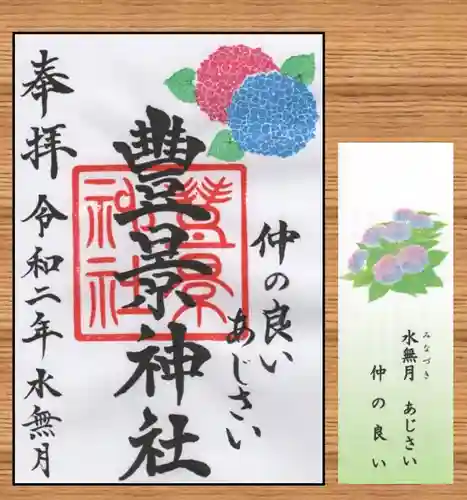 仲の良い
あじさい
豊景神社
豐景神社
奉拝 令和二年 水無月
みなづき
水無月 あじさい
仲の良い